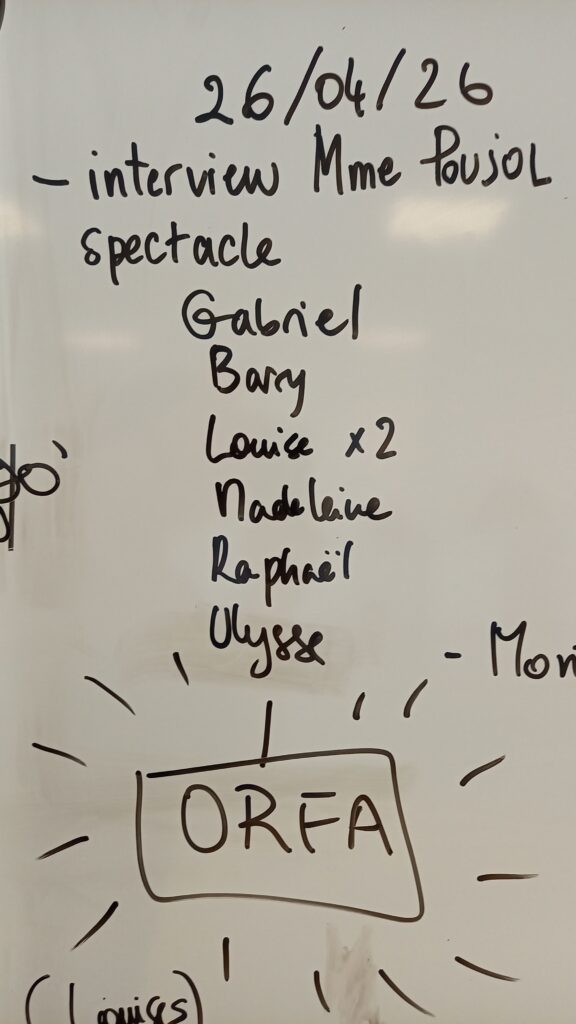 26/04/26
- interview Mme Poujol
spectacle
Gabriel
Barry
Louise x2
Madeleine
Raphaël
Ulysse
- Mon
ORFA
(Louises)